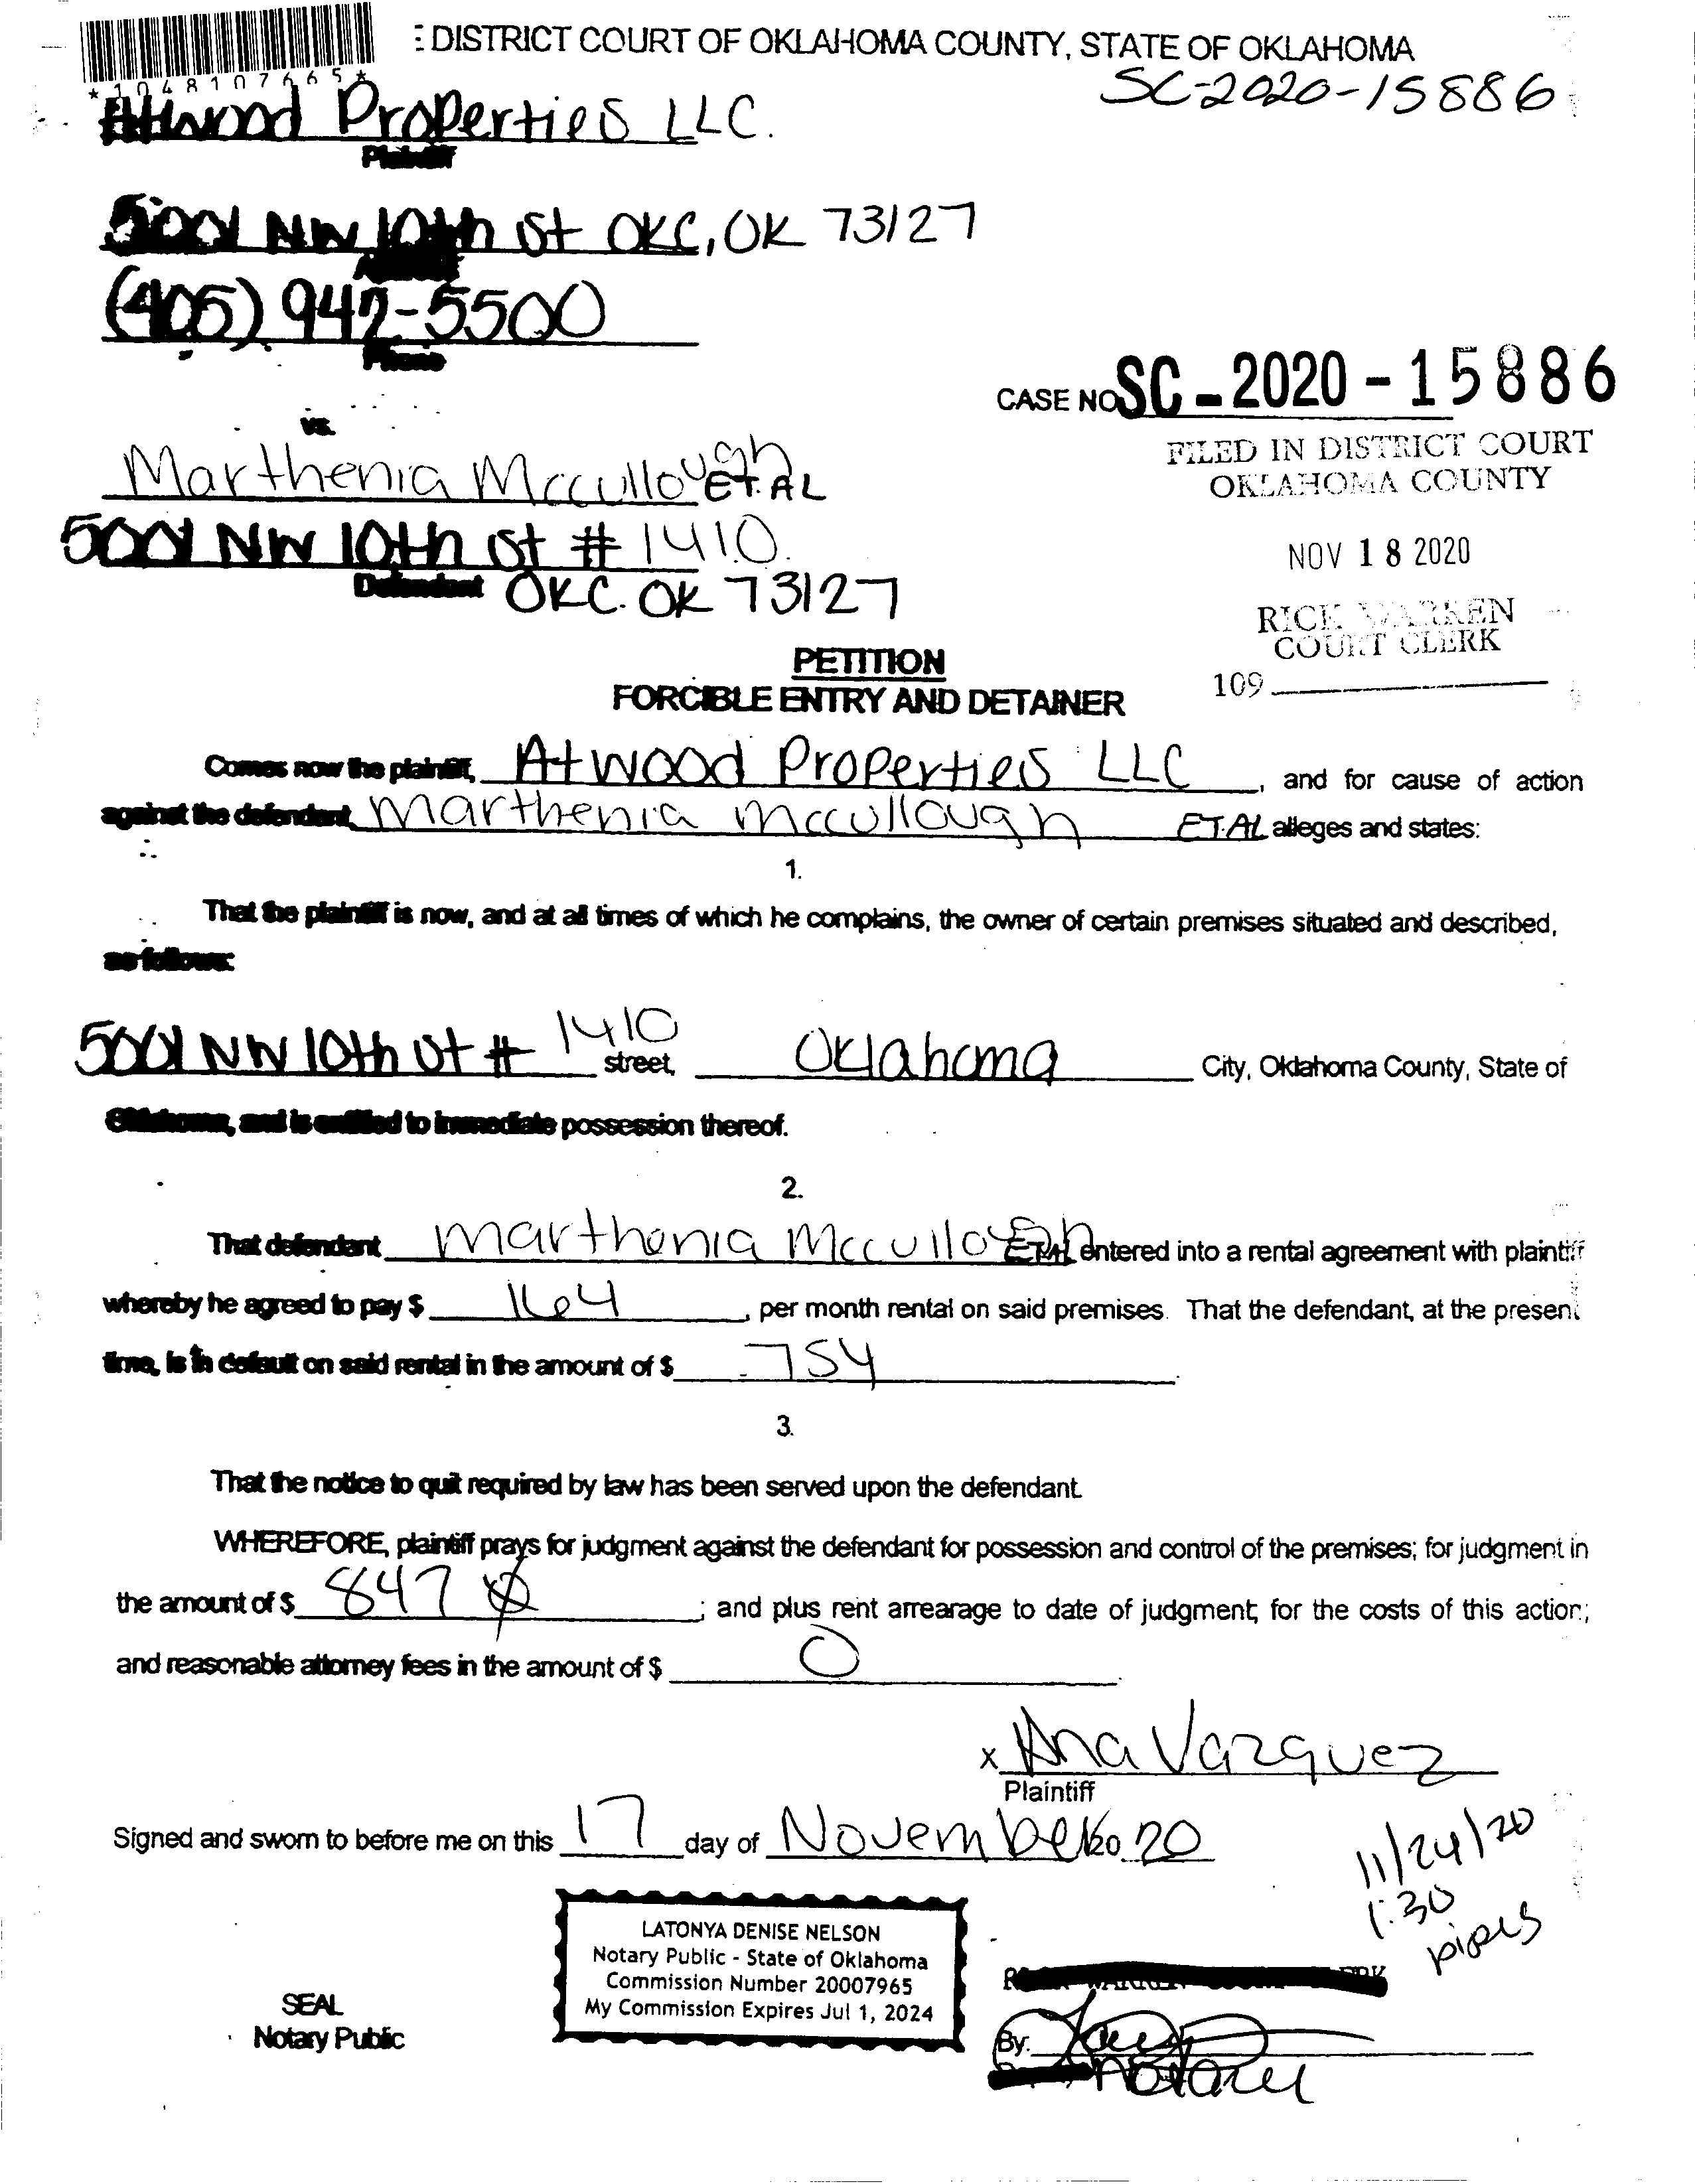 : DISTRICT COURT OF OKLAHOMA COUNTY, STATE OF OKLAHOMA
*1048107665*
SC-2020-15886
Atwood Properties LLC.
Plaintiff
5001 NW 10th St OKC, OK 73127
Address
(405) 942-5500
Phone
CASE NO SC-2020-15886
vs.
FILED IN DISTRICT COURT
OKLAHOMA COUNTY
Marthenia Mccullough ET.AL
5001 NW 10th St # 1410.
NOV 18 2020
Defendant OKC. OK 73127
RICK WARREN
COURT CLERK
109
PETITION
FORCIBLE ENTRY AND DETAINER
Comes now the plaintiff, Atwood Properties LLC, and for cause of action
against the defendant, Marthenia Mccullough ET.AL alleges and states:
1.
That the plaintiff is now, and at all times of which he complains, the owner of certain premises situated and described,
as follows:
5001 NW 10th St # 1410 street, Oklahoma City, Oklahoma County, State of
Oklahoma, and is entitled to immediate possession thereof.
2.
That defendant Marthenia Mccullough ET.AL entered into a rental agreement with plaintiff
whereby he agreed to pay $ 164, per month rental on said premises. That the defendant, at the present
time, is in default on said rental in the amount of $ 754.
3.
That the notice to quit required by law has been served upon the defendant.
WHEREFORE, plaintiff prays for judgment against the defendant for possession and control of the premises; for judgment in
the amount of $ 847; and plus rent arrearage to date of judgment; for the costs of this action;
and reasonable attorney fees in the amount of $ 0.
x Ana Vazquez
Plaintiff
Signed and sworn to before me on this 17 day of November 2020
11/24/20
1:30
pipes
LATONYA DENISE NELSON
Notary Public - State of Oklahoma
Commission Number 20007965
My Commission Expires Jul 1, 2024
SEAL
Notary Public
By:
Notary